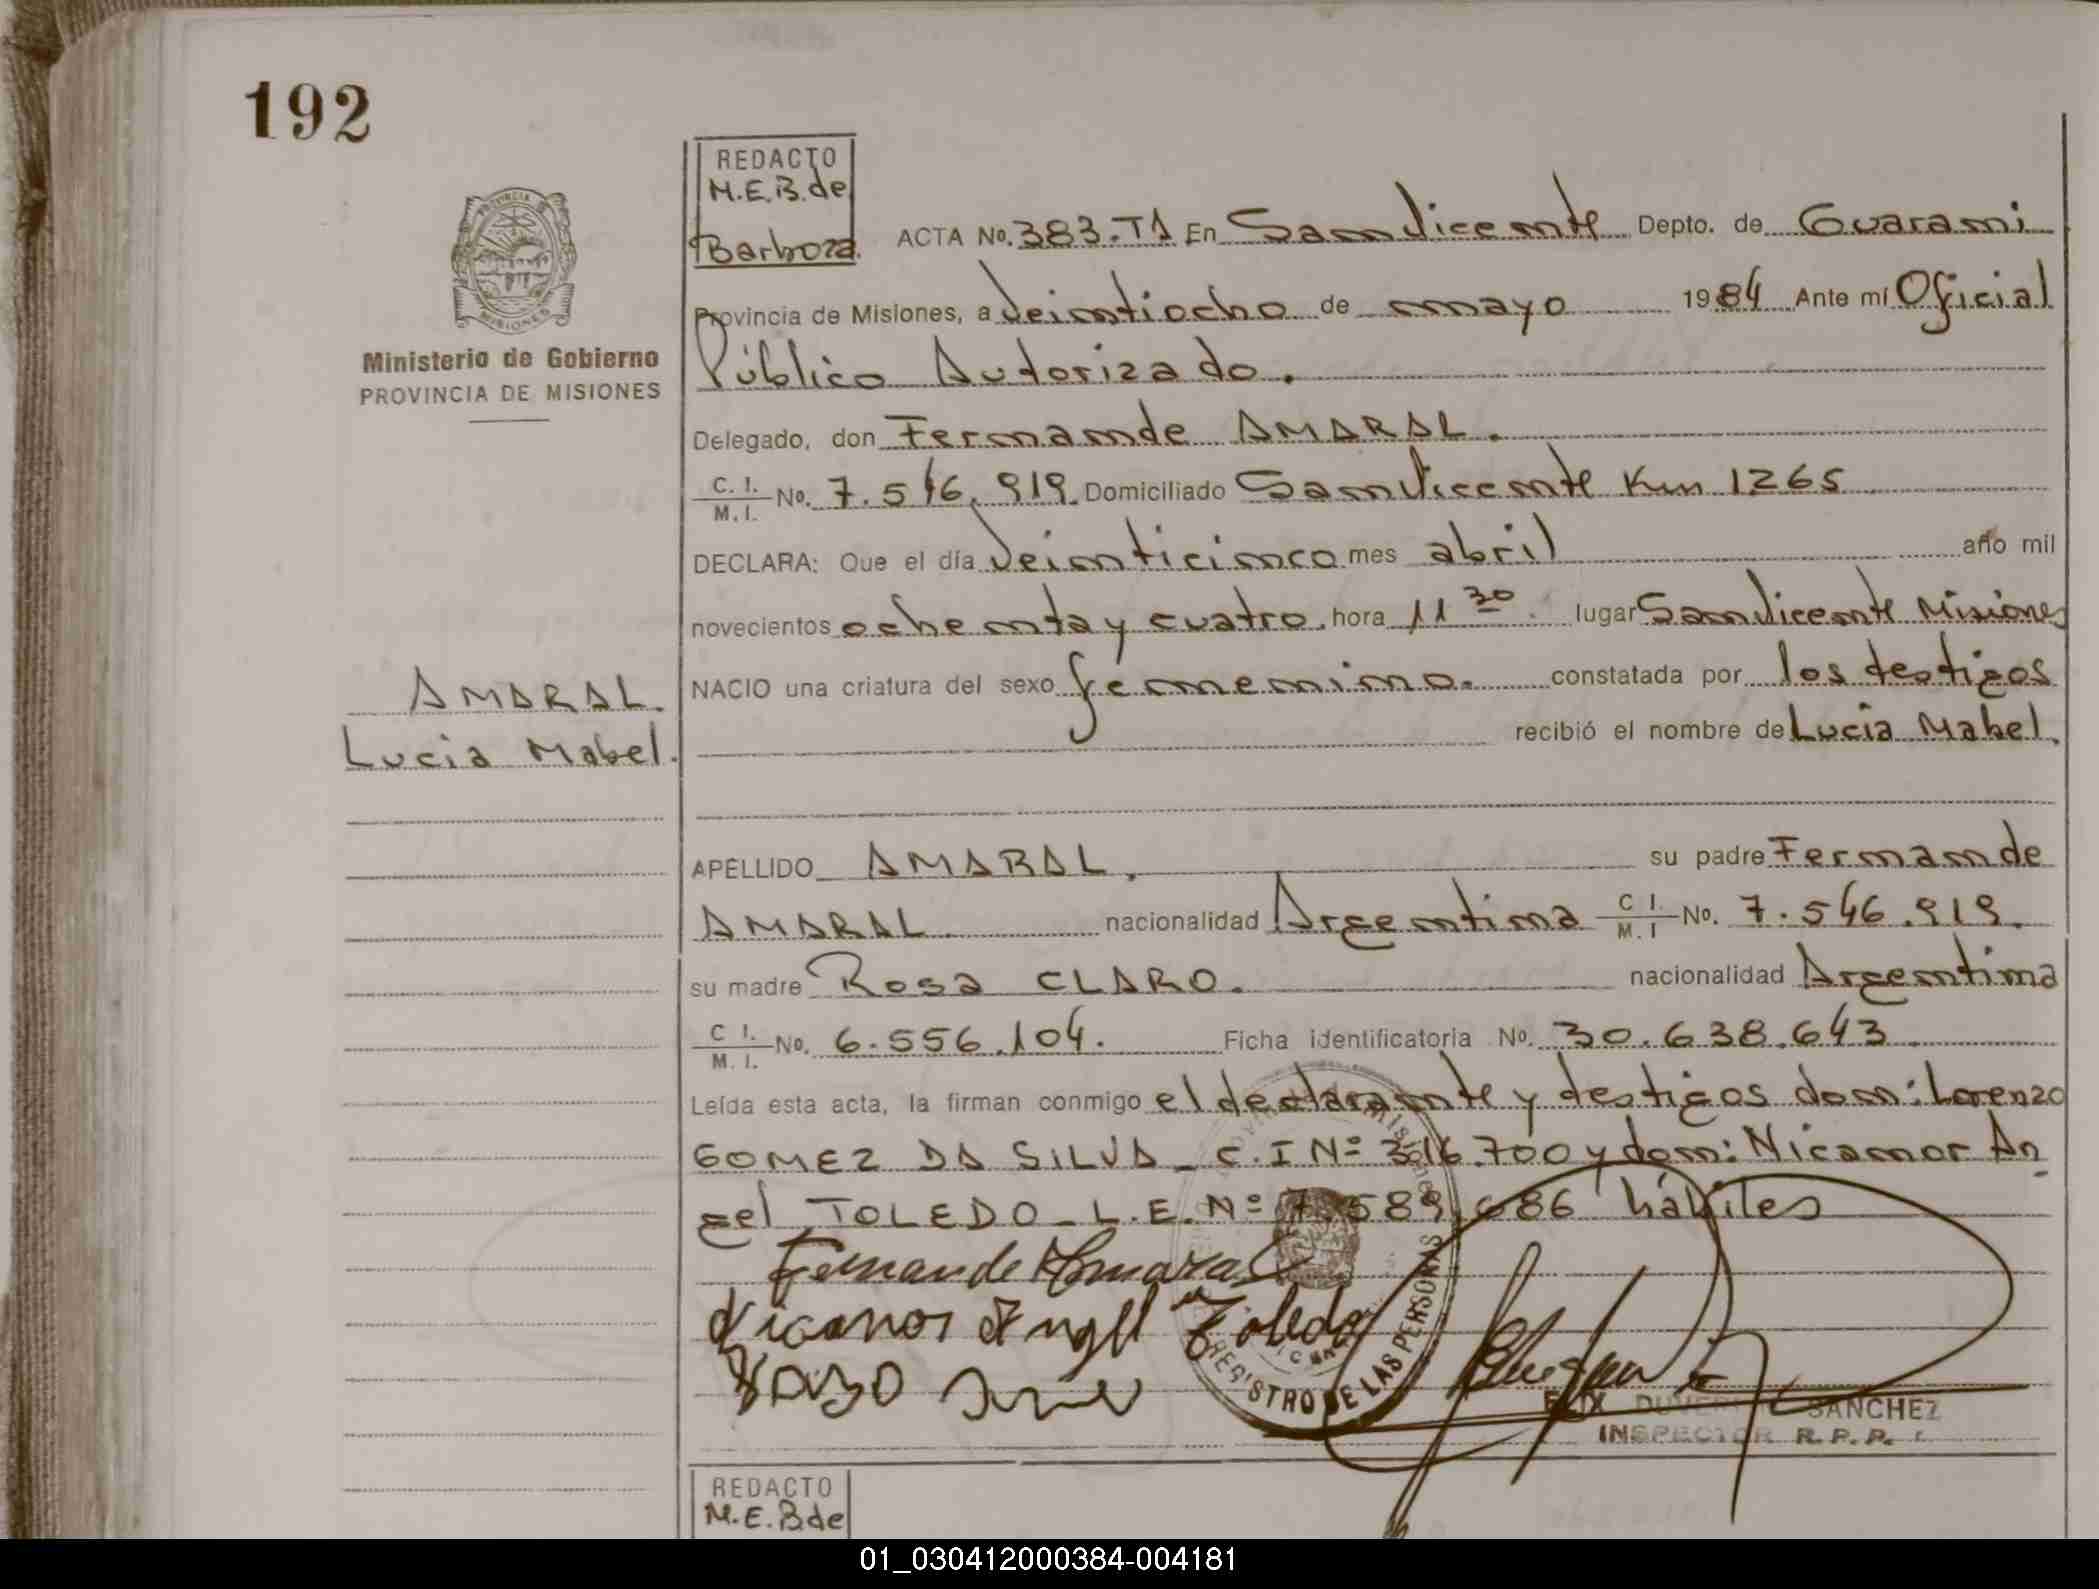 192
REDACTO
M.E.B. de
Barboza.
ACTA No. 383.T1 En San Vicente Depto. de Guarani
PROVINCIA DE
MISIONES
Provincia de Misiones, a Veintiocho de mayo 1984 Ante mi Oficial
Ministerio de Gobierno
PROVINCIA DE MISIONES
Público Autorizado.
Delegado, don Fernande AMARAL.
C. I.
M. I. No. 7.546.919. Domiciliado San Vicente Km 1265
DECLARA: Que el día Veinticinco mes abril año mil
novecientos ochenta y cuatro. hora 11 30. lugar San Vicente Misiones
NACIO una criatura del sexo femenino. constatada por los testigos
AMARAL.
Lucia Mabel.
recibió el nombre de Lucia Mabel.
APELLIDO AMARAL. su padre Fernande
AMARAL. nacionalidad Argentina C I.
M. I No. 7.546.919.
su madre Rosa CLARO. nacionalidad Argentina
C I.
M. I. No. 6.556.104. Ficha identificatoria No. 30.638.643.
Leída esta acta, la firman conmigo el declarante y testigos don: Lorenzo
GOMEZ DA SILVA_ C.I Nº 316.700 y don: Nicanor An
gel TOLEDO_ L.E. Nº 7.589.686 hábiles
Fernande Amaral
Nicanor Angel Toledo
REGISTRO DE LAS PERSONAS
FELIX SANCHEZ
INSPECTOR R. P. P.
REDACTO
M.E.B. de
01_030412000384-004181